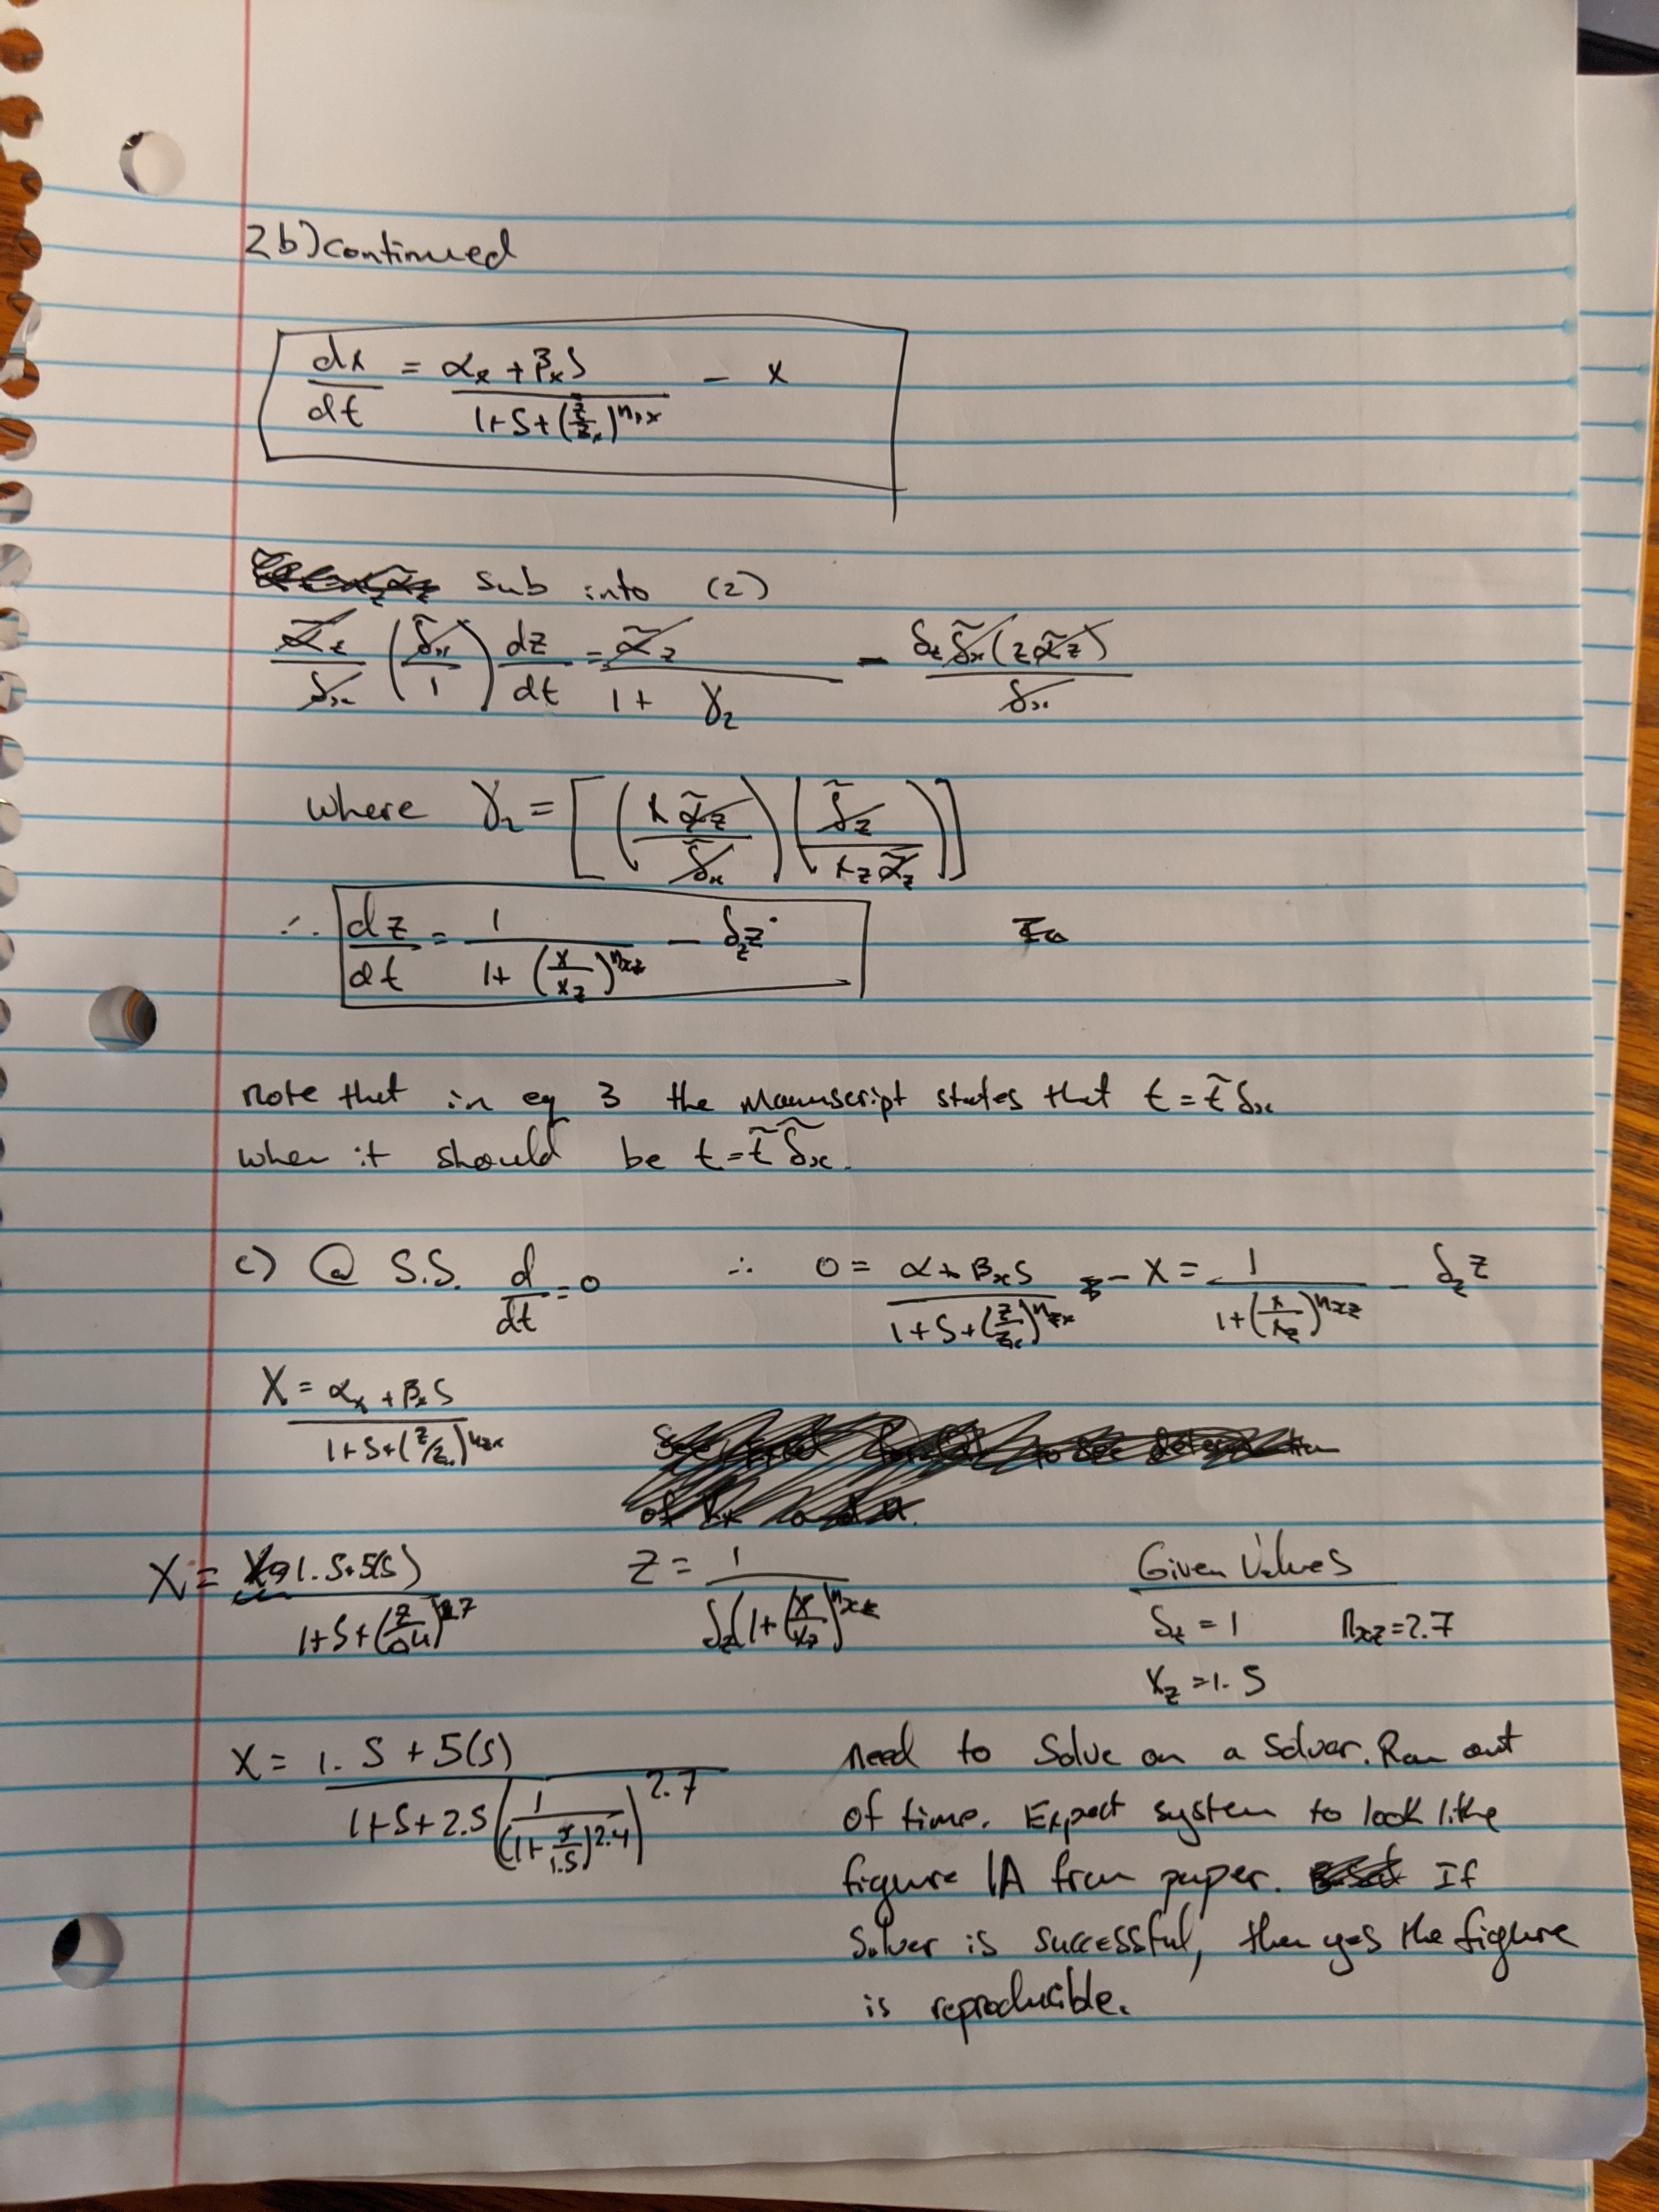 2b) continued
dx/dt = (αx + βx S) / (1+S+(z/zx)^nzx) − x
sub into (2)
α̃z/δ̃x (δ̃x/1) dz/dt = α̃z/(1+ γ2) − δz δ̃x (z α̃z)/δx
where γ2 = [(x α̃z/δ̃x)(δ̃z/(xz α̃z))]
∴ dz/dt = 1/(1+(x/xz)^nxz) − δz z
note that in eq 3 the manuscript states that t = t̃ δx
when it should be t = t̃ δ̃x.
c) @ S.S. d/dt = 0 ∴ 0 = (α + βx S)/(1+S+(z/zx)^nzx) − x = 1/(1+(x/xz)^nxz) − δz z
X = (αx + βx S)/(1+S+(z/zx)^nzx)
X = (1.5+5(S))/(1+S+(z/0.4)^2.7) z = 1/(δz(1+(x/xz)^nxz) Given Values
δz = 1 nxz = 2.7
xz = 1.5
X = (1.5+5(S))/(1+S+2.5(1/(1+x/1.5)^2.4)^2.7) need to solve on a solver. Ran out
of time. Expect system to look like
figure 1A from paper. If
solver is successful, then yes the figure
is reproducible.